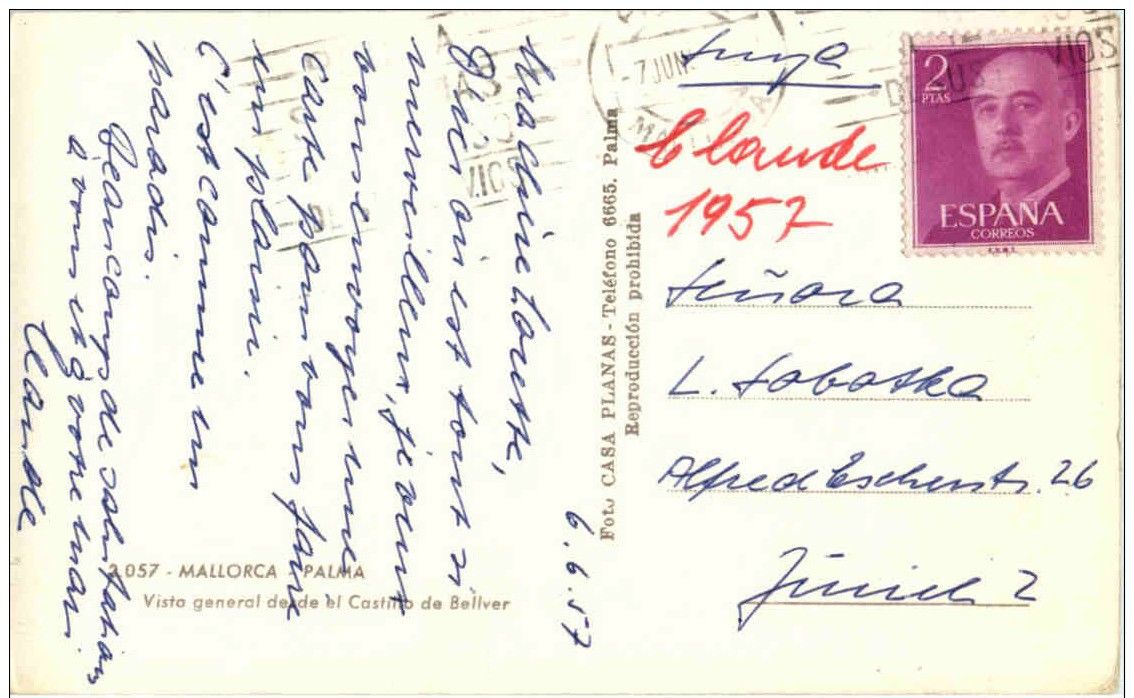 Ma chère Loulette,
D'ici où est tout si
merveilleux, je vous
envoye une
carte pour vous faire
un plaisir.
C'est comme un
paradis.
Beaucoup de salutations
à vous et à votre mari
Claude
6.6.57
2.057 - MALLORCA - PALMA
Vista general desde el Castillo de Bellver
Foto CASA PLANAS - Teléfono 6665. Palma
Reproducción prohibida
7 JUN.
VIOS
VIOS
2
PTAS
ESPAÑA
CORREOS
F.N.M.T.
Suiza
Claude
1957
Señora
L. Sobotka
Alfred Escherstr. 26
Zürich 2